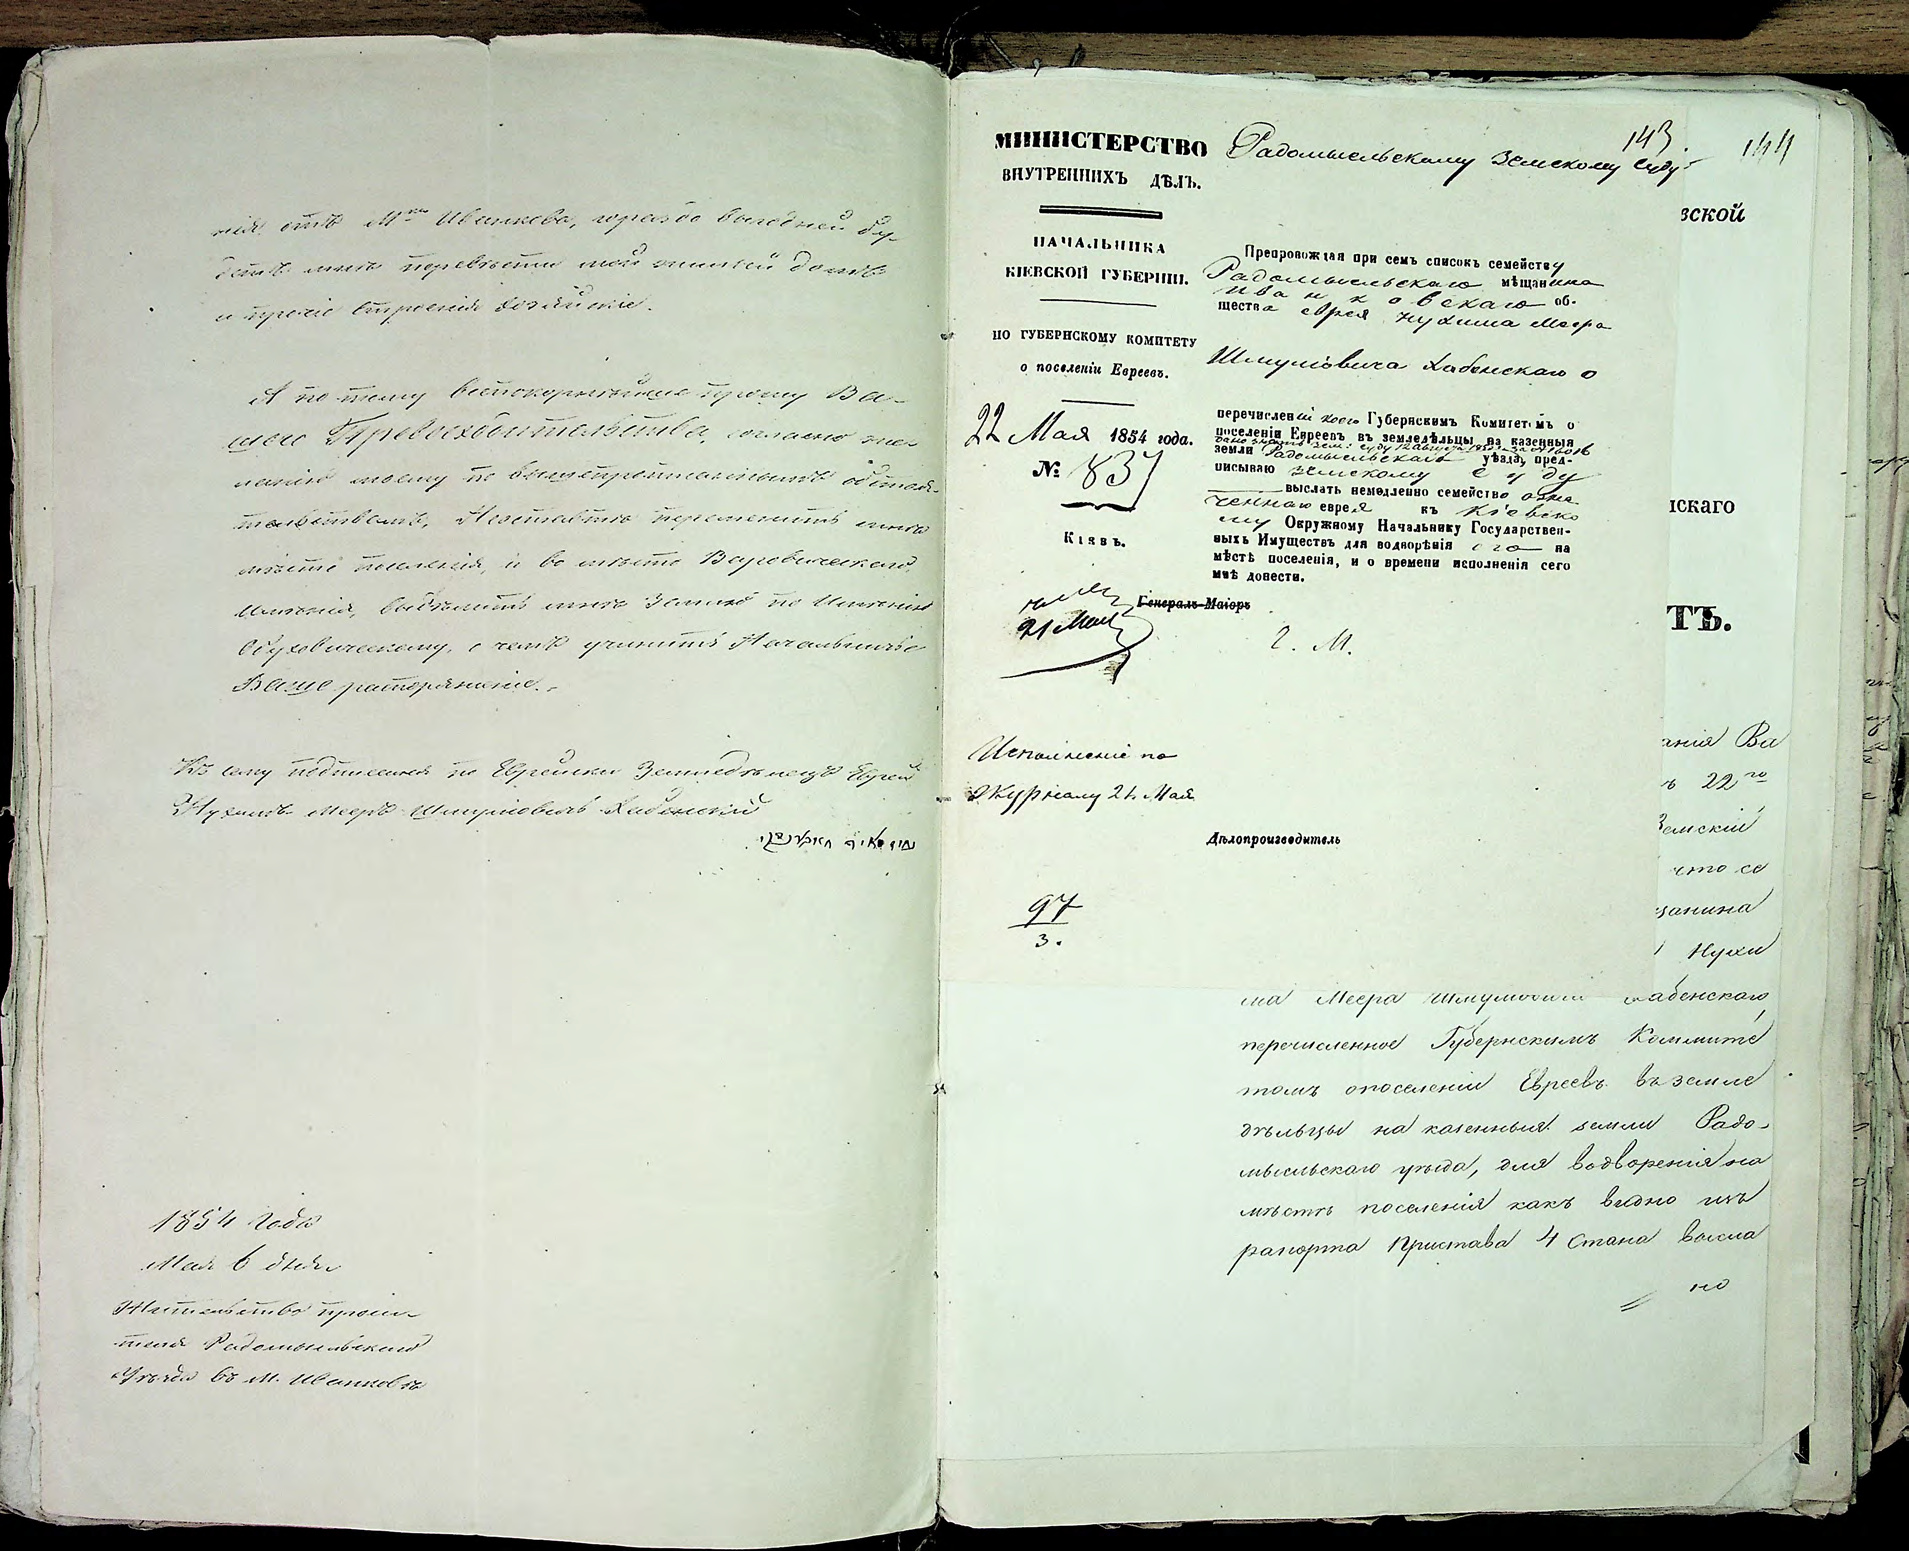 нія отъ М. Иванкова, гораздо выгодней бу-
детъ мнѣ перевезти мой жилой домъ
и прочіе строенія хозяйскіе.
А по тому всепокорнѣйше прошу Ва-
шего Превосходительства, согласно же-
ланію моему по вышепрописаннымъ обстоя-
тельствамъ, переменить мнѣ
мѣсто поселенія, и во мѣсто Варовическаго
имѣнія, мнѣ Землю по Имѣнію
Обуховическому, о чемъ учинить Начальничье
Ваше распоряженіе.
Къ сему подписался по Еврейски Земледѣлецъ Еврей
Нухимъ Мееръ Шмуловичъ Хабенскій
1854 года
Мая 6 дня
Жительство проси-
теля Радомысльскаго
Уѣзда въ М. Иванковѣ
143.
144
МИНИСТЕРСТВО
ВНУТРЕННИХЪ ДѢЛЪ.
НАЧАЛЬНИКА
КІЕВСКОЙ ГУБЕРНІИ.
ПО ГУБЕРНСКОМУ КОМИТЕТУ
о поселеніи Евреевъ.
22 Мая 1854 года.
№ 837
Кіевъ.
21 Мая
Исполненіе по
журналу 21 Мая
97
3.
Радомысльскому Земскому Суду
Препровождая при семъ список семейству
Радомысльскаго мѣщанина
Иванковскаго об-
щества еврея Нухима Меера
Шмуловича Хабенскаго о
перечисленіи коего Губернскимъ Комитетомъ о
поселеніи Евреевъ въ земледѣльцы на казенныя
дано знать зем. суду 12 августа за № 16016
земли Радомысльскаго уѣзда, пред-
писываю земскому суду
выслать немедленно семейство озна
ченнаго еврея къ Кіевско
му Окружному Начальнику Государствен-
ныхъ Имуществъ для водворенія его на
мѣстѣ поселенія, и о времени исполненія сего
мнѣ донести.
Генералъ-Маіоръ
Г. М.
Дѣлопроизводитель
вской
нскаго
ТЪ.
анія Ва
ъ 22 го
Земскій
что се
щанина
Нухи
ма Меера Шмуловича Хабенскаго,
перечисленное Губернскимъ Коммите
томъ о поселеніи Евреевъ въ земле
дѣльцы на казенныя земли Радо-
мысльскаго уѣзда, для водворенія на
мѣстѣ поселенія какъ видно изъ
рапорта Пристава 4 Стана высла
но